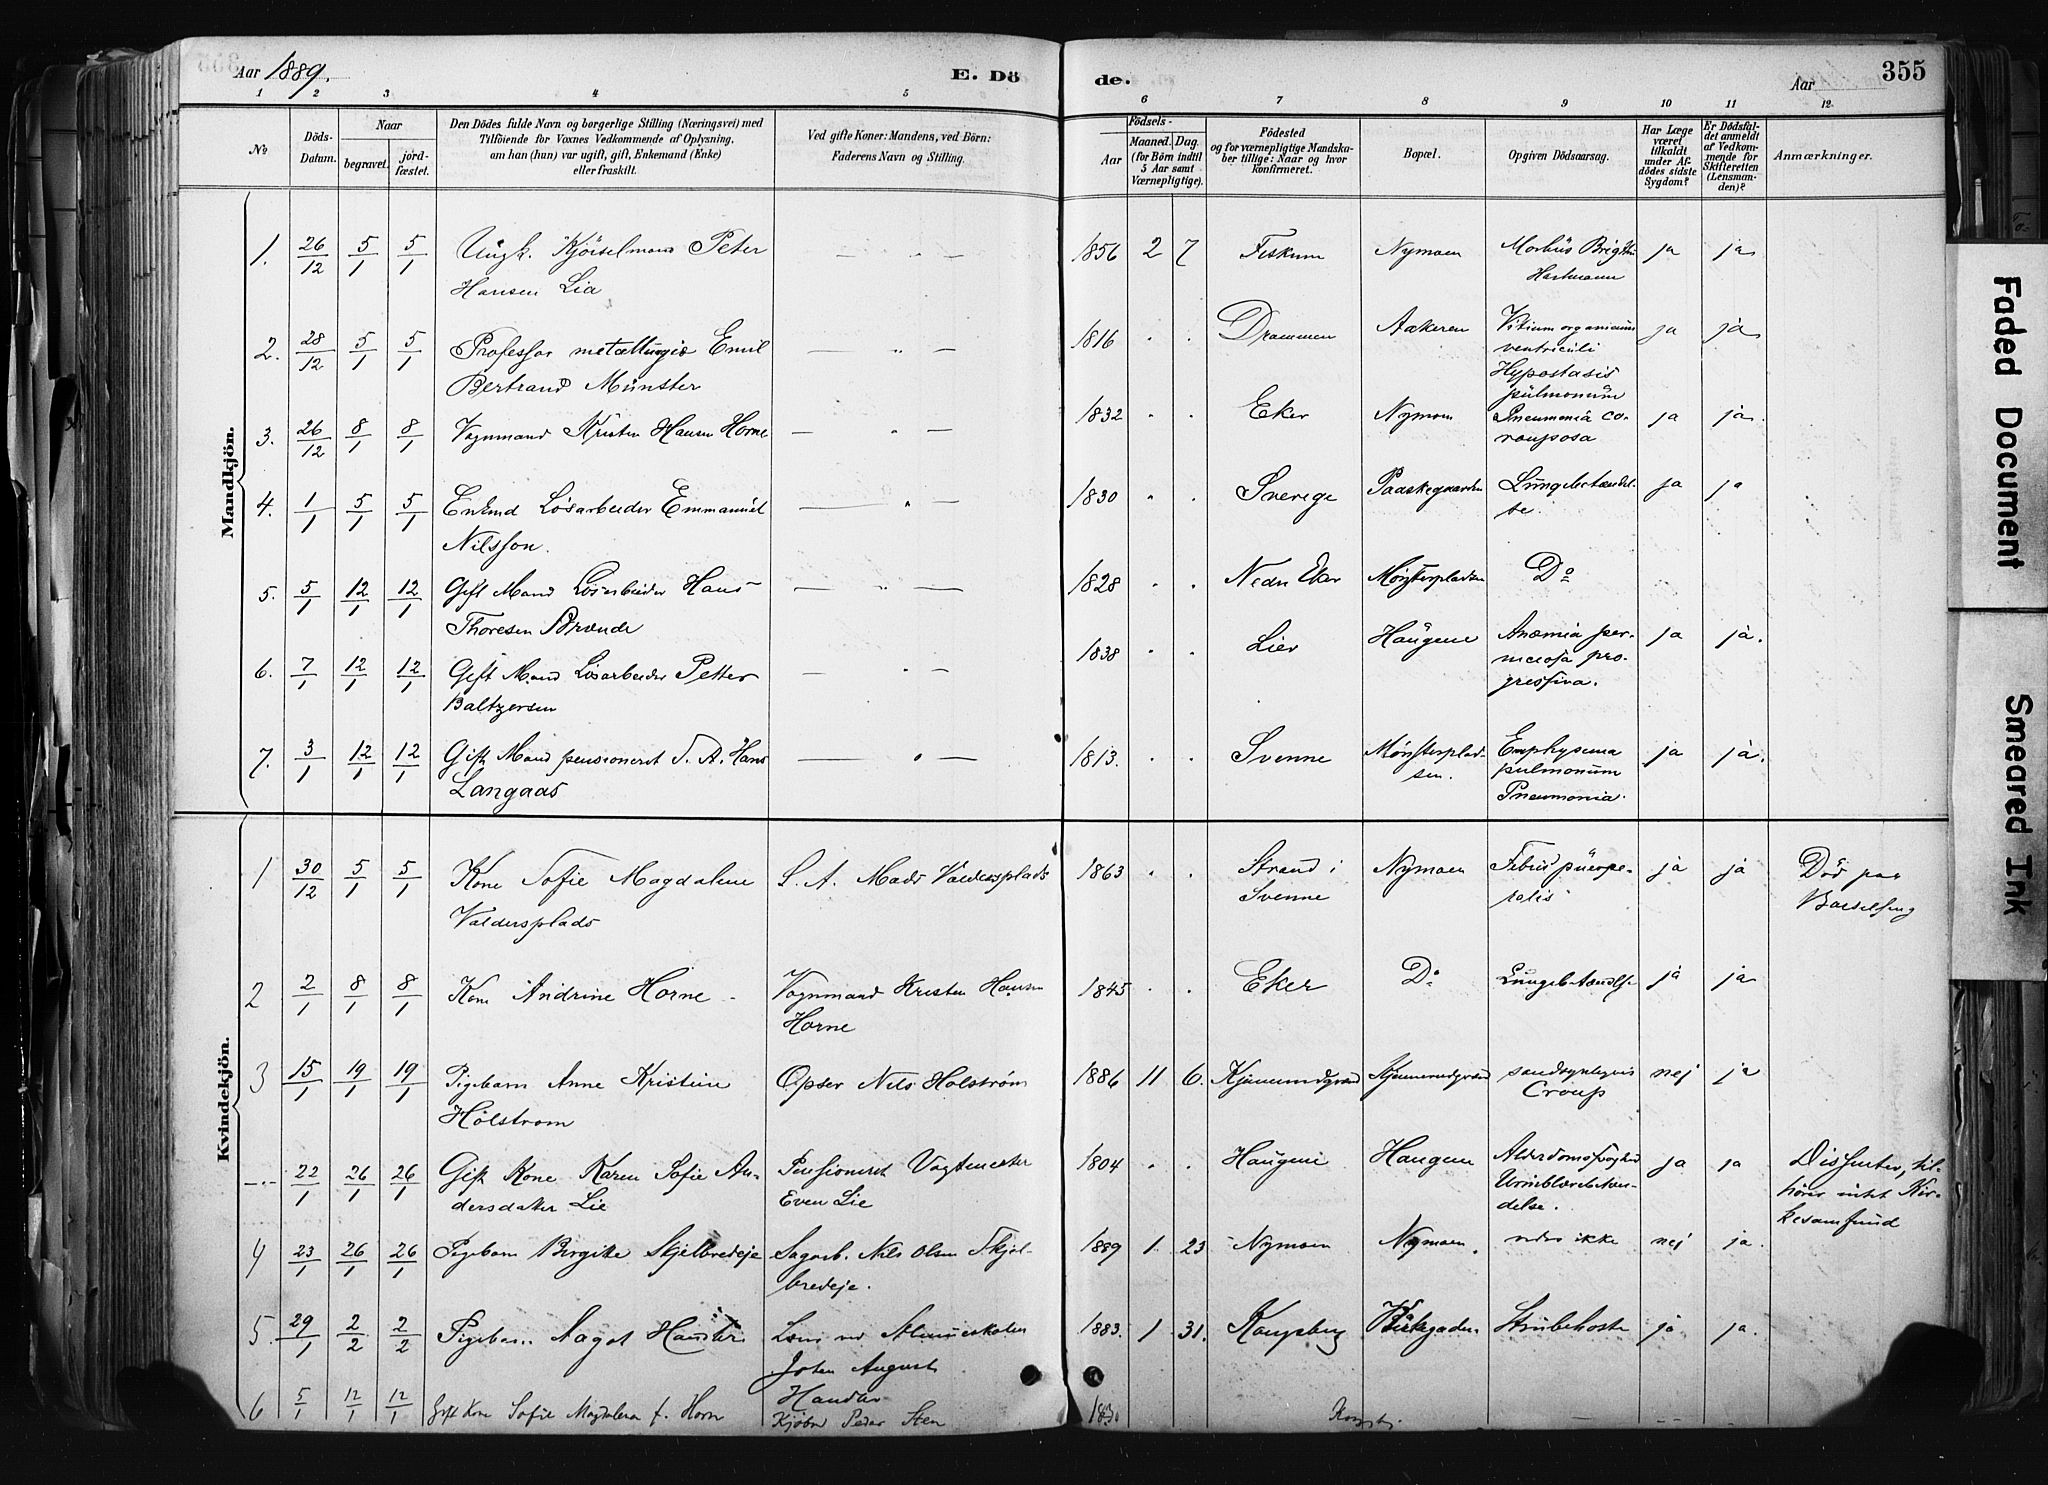 Aar 1889.
E. Dö
de.
Aar
355
1 2 3 4 5 6 7 8 9 10 11 12
No
Döds-Datum.
Naar
begravet.
jord-fæstet.
Den Dödes fulde Navn og borgerlige Stilling (Næringsvei) med
Tilföiende för Voxnes Vedkommende af Oplysning,
om han (hun) var ugift, gift, Enkemand (Enke)
eller fraskilt.
Ved gifte Koner: Mandens, ved Börn:
Faderens Navn og Stilling.
Födsels-
Aar
Maaned. Dag.
(for Börn indtil
5 Aar samt
Værnepligtige).
Födested
og for værnepligtige Mandska-
ber tillige: Naar og hvor
konfirmeret.
Bopæl.
Opgiven Dödsaarsag.
Har Læge
været
tilkaldt
under Af-
dödes sidste
Sygdom?
Er Dödsfal-
det anmeldt
af Vedkom-
mende for
Skifteretten
(Lensman-
den)?
Anmærkninger.
Mandkjön.
1. 26/12 5/1 5/1 Ungk. Peter — „ — 1856 2 7 Fiskum Nymoen Morbus Brigthi ja ja
Hansen Lia
2. 28/12 5/1 5/1 Professor metallurgiæ Emil — „ — 1816 „ „ Drammen Aakeren Vitium organicum ja ja
Bertrand Münster ventriculi
Hypostasis
pulmonum
3. 26/12 8/1 8/1 Vognmand Kristen Hansen Horne — „ — 1832 „ „ Eker Nymoen Pneumonia ja ja.
4. 1/1 5/1 5/1 Enkmd Løsarbeider Emmanuel — „ — 1830 „ „ Sverige Paaskegaarden Lungebetændel- ja ja
Nilsson. se.
5. 5/1 12/1 12/1 Gift Mand Løsarbeider Hans — „ — 1828 „ „ Nedre Eker Mønsterpladsen Do
Thoresen
6. 7/1 12/1 12/1 Gift Mand Løsarbeider Petter — „ — 1838 „ „ Lier Haugene Anæmia per- ja ja.
Baltzersen niciosa pro-
gressiva.
7. 3/1 12/1 12/1 Gift Mand pensioneret S. A. Hans — „ — 1813. „ „ Svenne Mønsterplad- Emphysema ja ja.
Langaas sen. pulmonum
Pneumonia.
Kvindekjön.
1 30/12 5/1 5/1 Kone Sofie Magdalene S. A. Mads Valdersplads 1863 „ „ Strand i Nymoen Febris puerpe- ja ja Død paa
Valdersplads Svenne ralis Barselseng
2 2/1 8/1 8/1 Kone Andrine Horne Vognmand Kristen Hansen 1845 „ „ Eker Do Lungebetændelse ja ja
Horne
3 15/1 19/1 19/1 Pigebarn Anne Kristine Opser Nils Holstrøm 1886 11 6. nej ja
Holstrøm Croup
—„— 22/1 26/1 26/1 Gift Kone Karen Sofie An- Pensioneret Vagtmester 1804 „ „ Haugene Haugene ja ja Dissenter, til-
dersdatter Lie Even Lie Urinblærebetæn- hører intet Kir-
delse. kesamfund
4 23/1 26/1 26/1 Pigebarn Birgitte Skjelbredeje Sagarb. Nils Olsen Skjel- 1889 1 23 Nymoen Nymoen. vides ikke nej ja.
bredeje.
5. 29/1 2/2 2/2 Pigebarn Aagot Handler Lærer ved Almueskolen 1883. 1 31. Kongsberg Kirkegaden Strubehoste ja ja.
Johan August
Handler
6 5/1 12/1 12/1 Gift Kone Sofie Magdalena f. Horn Peder Steen 1830
Faded Document
Smeared Ink